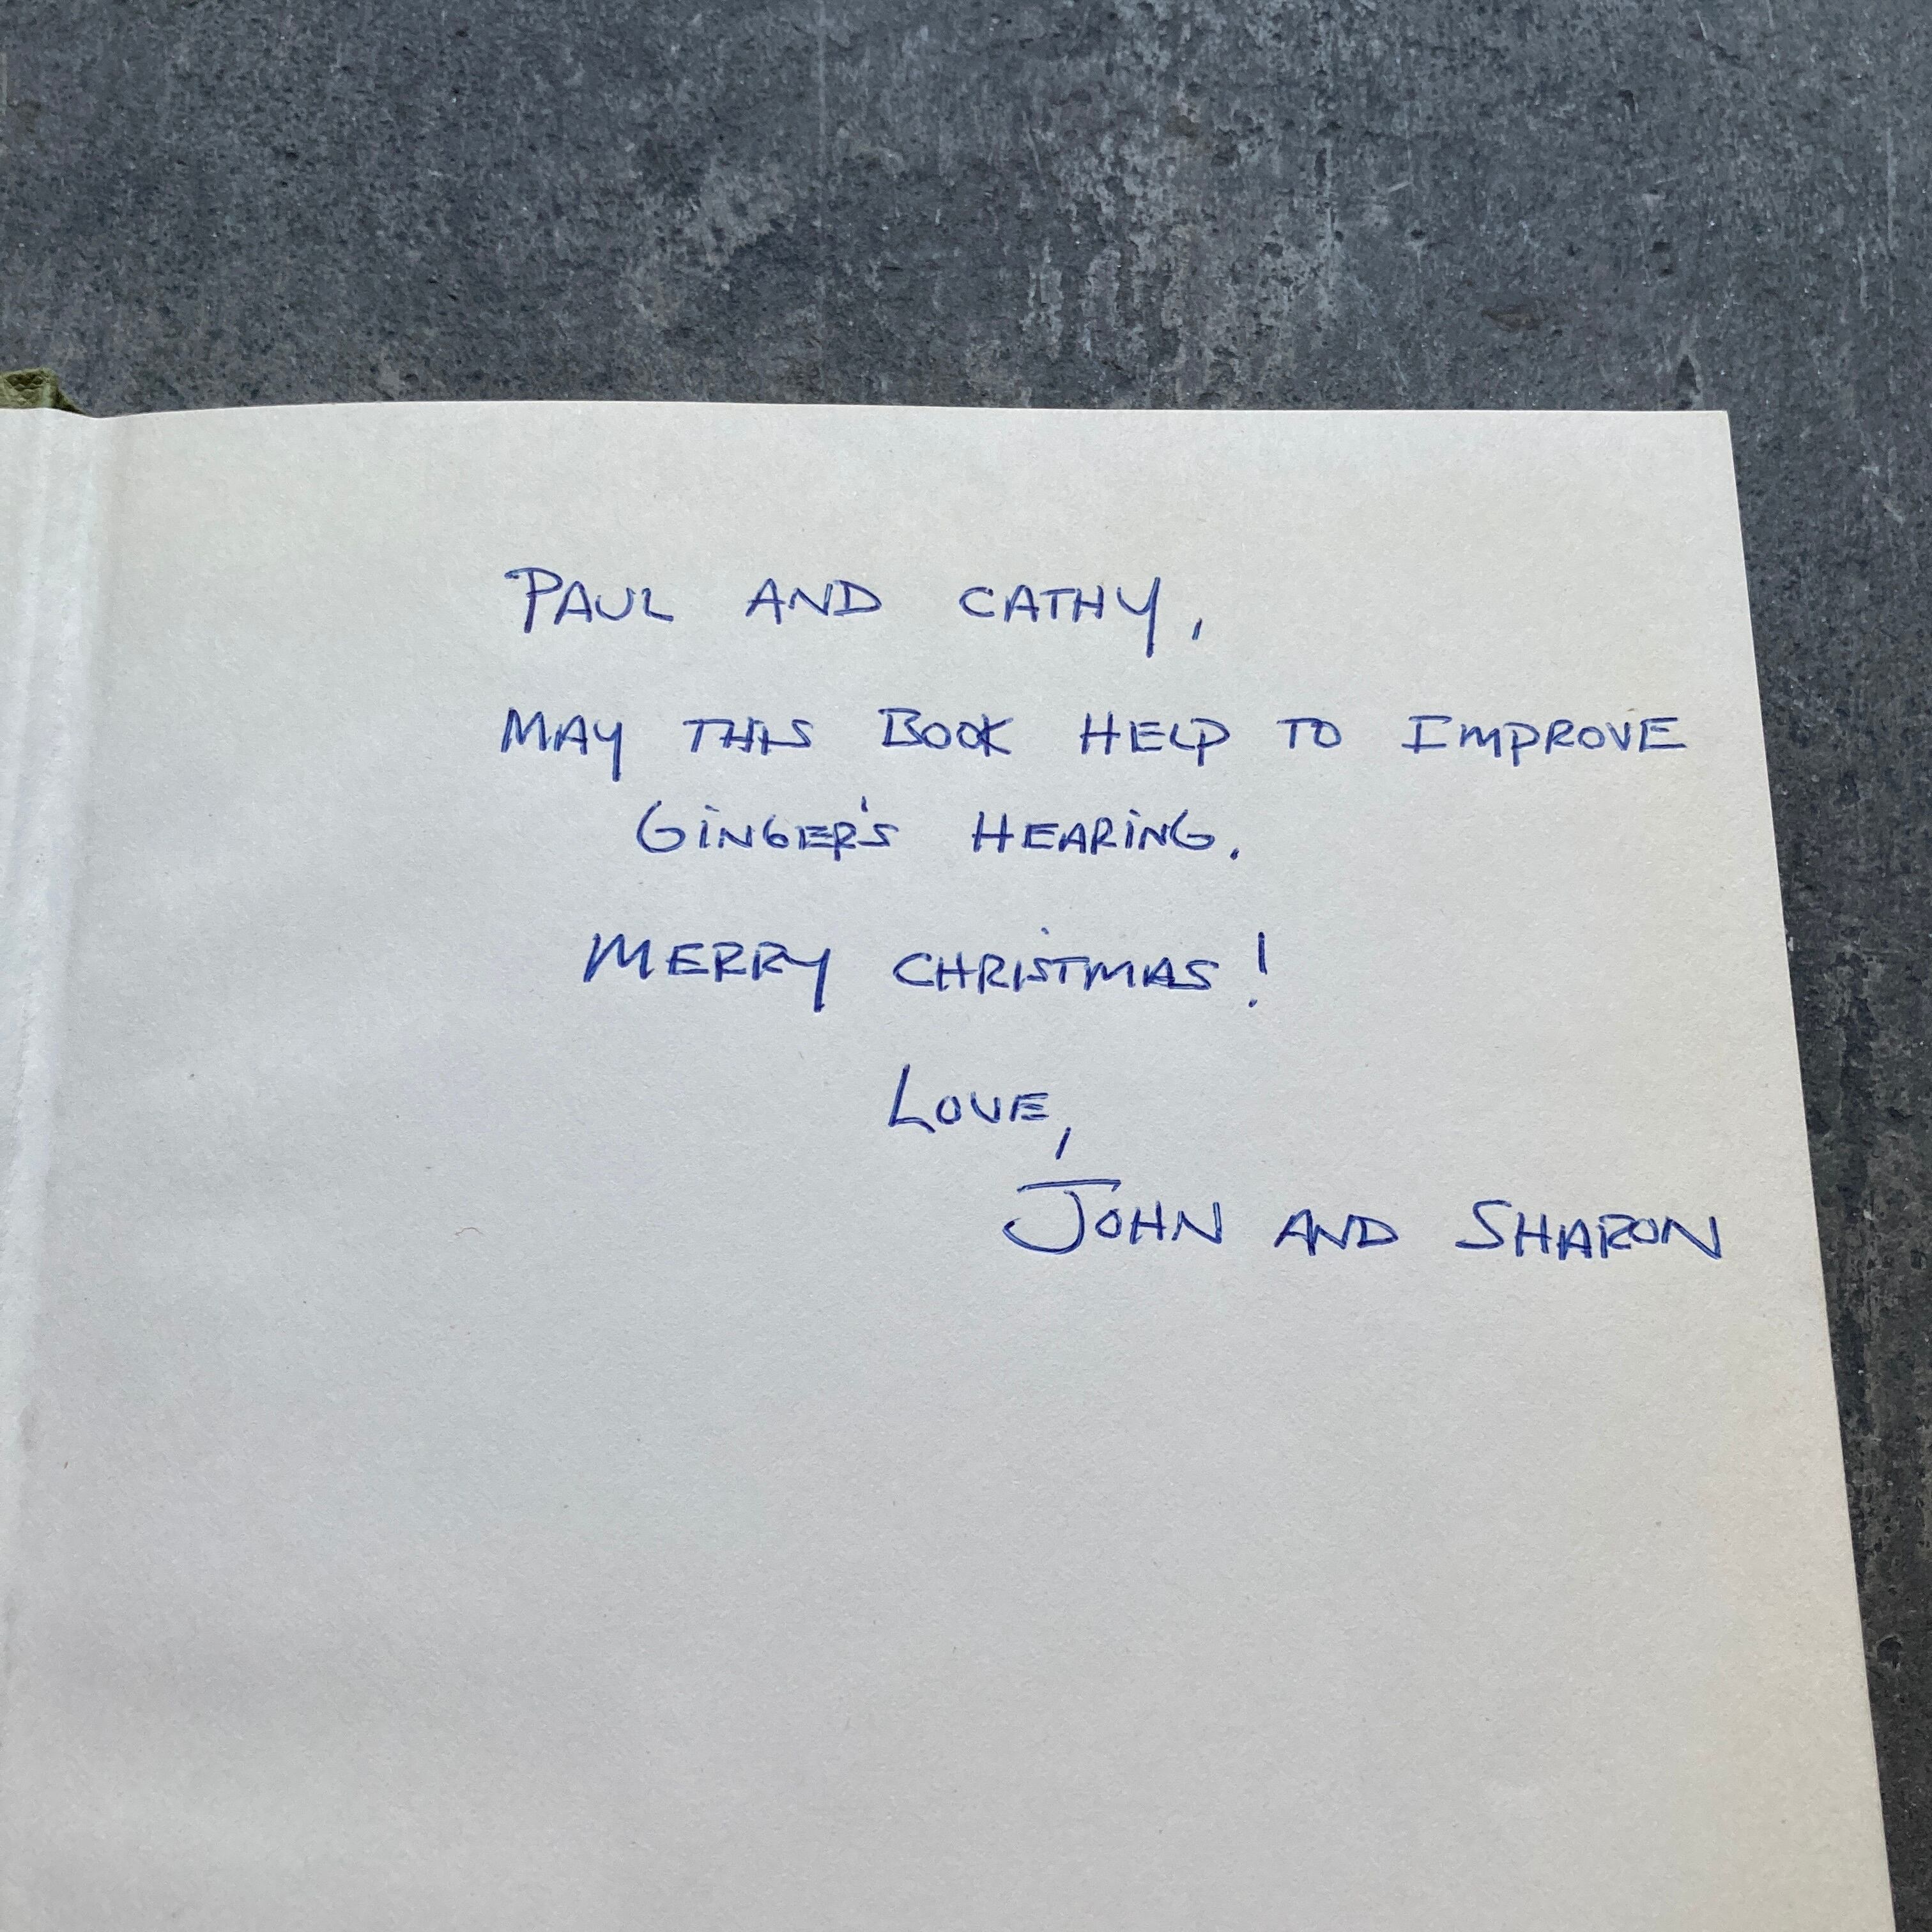 PAUL AND CATHY,
MAY THIS BOOK HELP TO IMPROVE
GiNGER'S HEARiNG.
MERRY CHRISTMAS!
LOVE,
JOHN AND SHARON